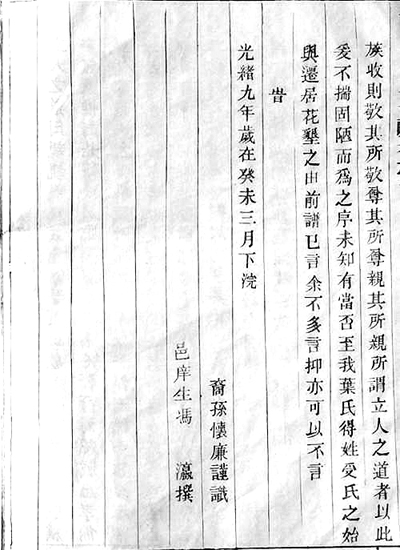 族收則敬其所敬尊其所尊親其所親所謂立人之道者以此
爰不揣固陋而爲之序未知有當否至我葉氏得姓受氏之始
與遷居花墾之由前譜已言余不多言抑亦可以不言
旹
光緒九年歲在癸未三月下浣
裔孫懷廉謹識
邑庠生馮　瀛撰